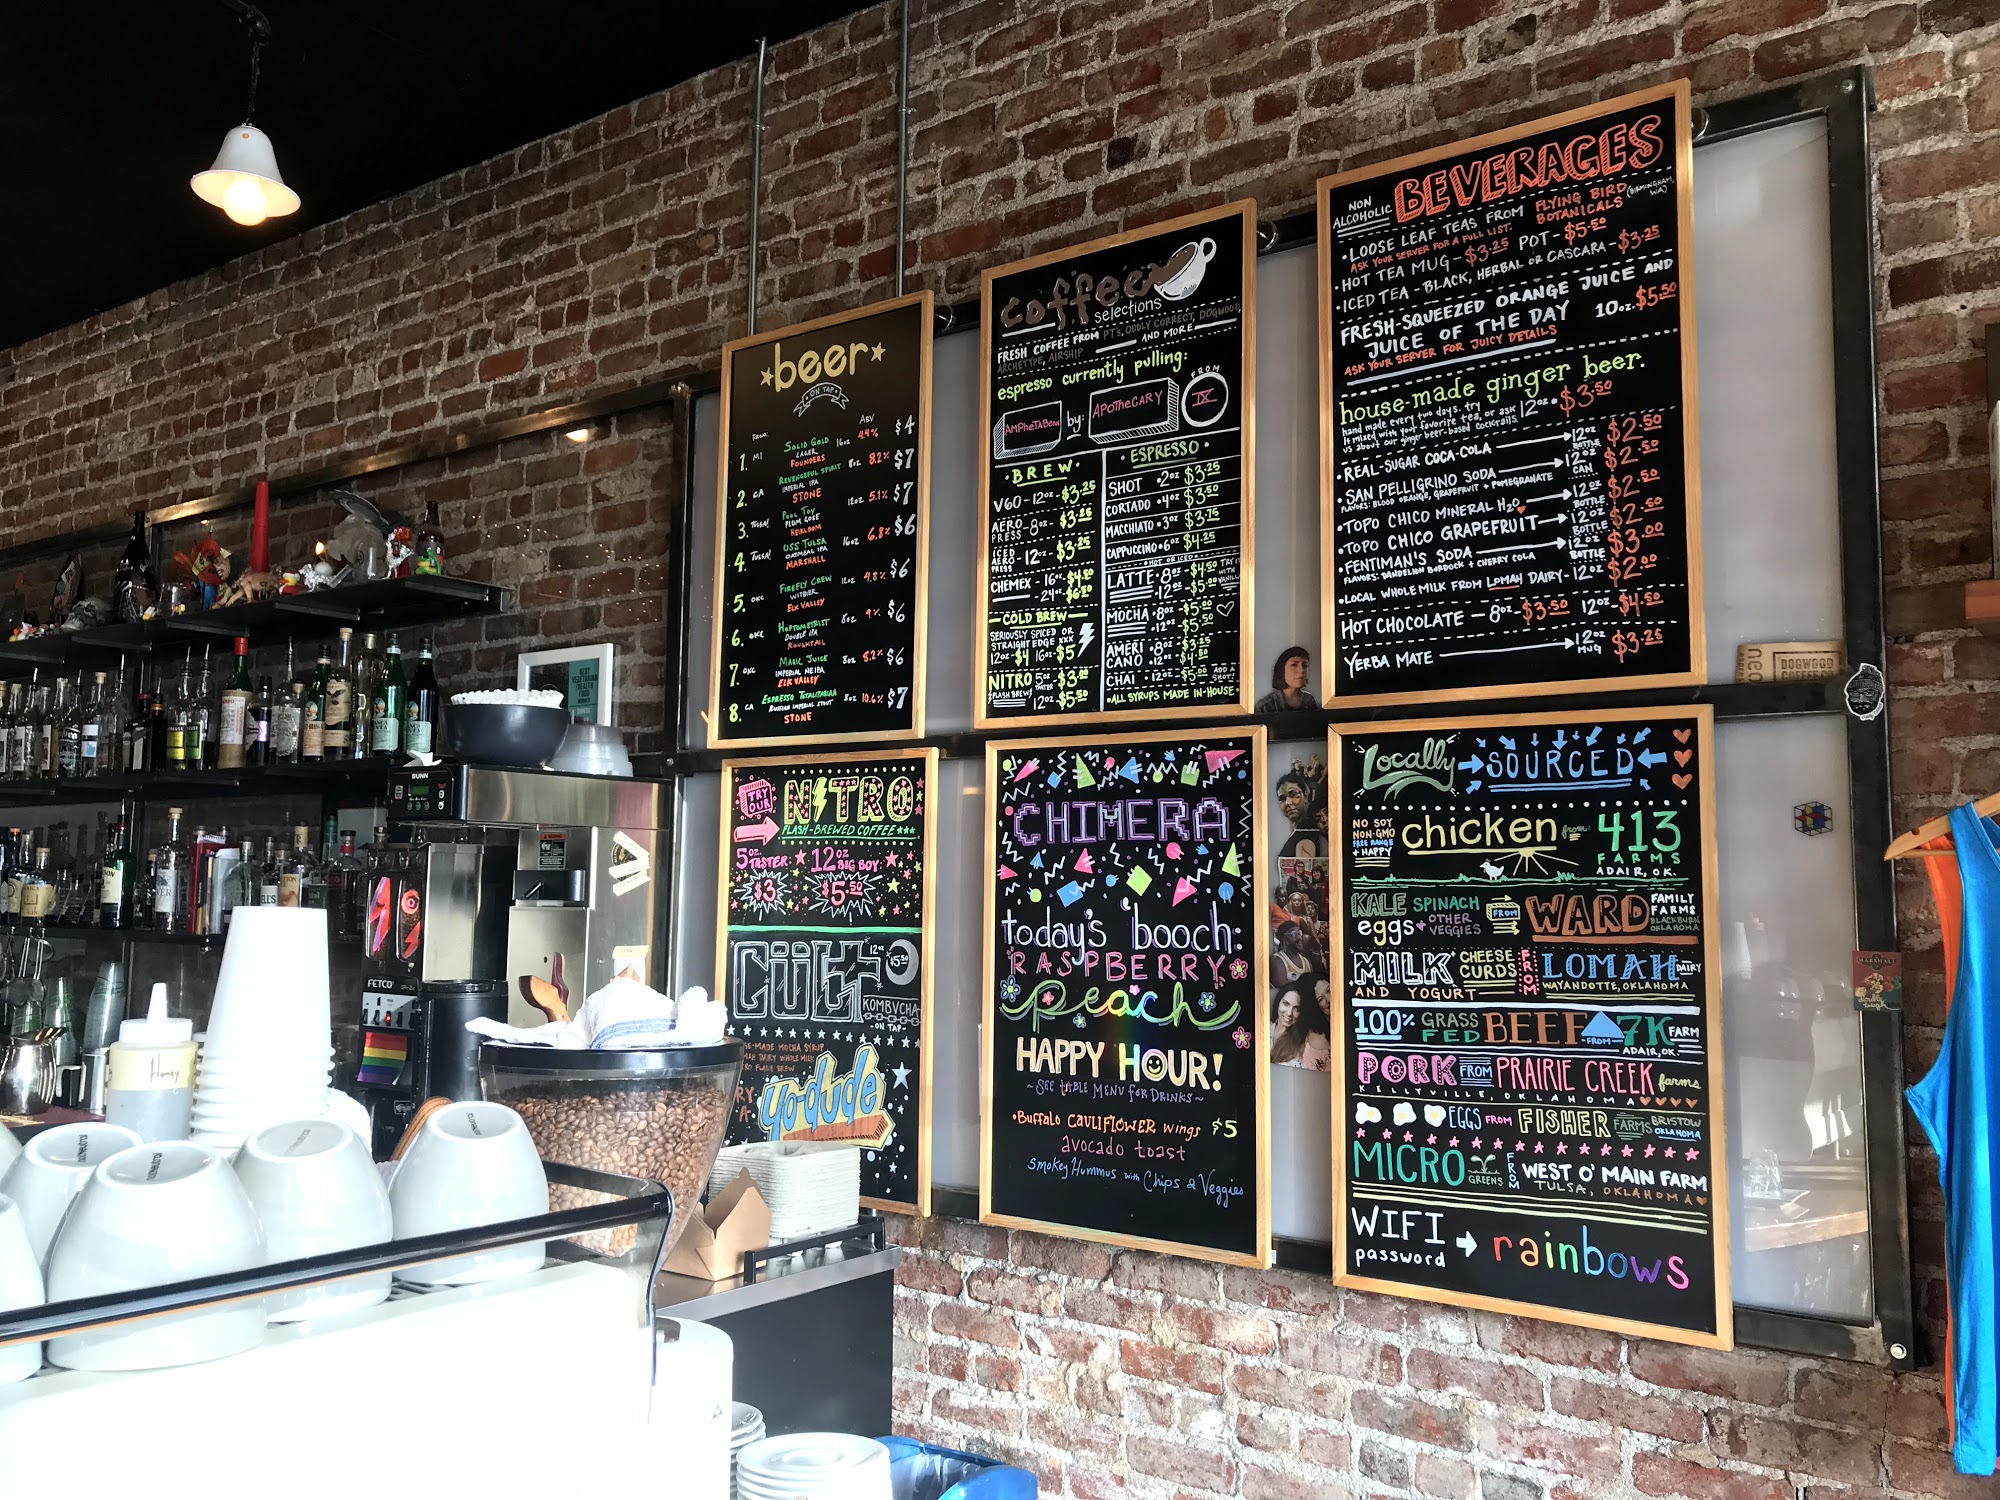 beer
ON TAP
FROM:
ABV
1. MI SOLID GOLD 16oz 4.4% $4
LAGER
FOUNDERS
2. CA REVENGEFUL SPIRIT 8oz 8.2% $7
IMPERIAL IPA
STONE
3. TULSA! POOL TOY 12oz 5.1% $7
PLUM GOSE
HEIRLOOM
4. TULSA! USS TULSA 16oz 6.8% $6
OATMEAL IPA
MARSHALL
5. OKC FIREFLY CREW 12oz 4.8% $6
WITBIER
ELK VALLEY
6. OKC HOPTOMETRIST 8oz 9% $6
DOUBLE IPA
ROUGHTAIL
7. OKC MAGIC JUICE 8oz 8.2% $6
IMPERIAL NE IPA
ELK VALLEY
8. CA ESPRESSO TOTALITARIAN 8oz 10.6% $7
RUSSIAN IMPERIAL STOUT
STONE
coffee
selections
FRESH COFFEE FROM PT's, ODDLY CORRECT, DOGWOOD,
ARCHETYPE, AIRSHIP AND MORE
espresso currently pulling:
AMPheTABean by: APOTheCARY FROM IX
BREW
V60 - 12oz - $3.25
AERO PRESS - 8oz - $3.25
ICED AERO PRESS - 12oz - $3.25
CHEMEX - 16oz - $4.50
- 24oz - $6.50
COLD BREW
SERIOUSLY SPICED OR
STRAIGHT EDGE XXX
12oz $4 16oz $5
NITRO 5oz TASTER $3.00
FLASH BREW! 12oz $5.50
ESPRESSO
SHOT • 2oz $3.25
CORTADO • 4oz $3.50
MACCHIATO • 3oz $3.75
CAPPUCCINO • 6oz $4.25
HOT OR ICED
LATTE • 8oz • $4.50 TRY IT WITH VANILLA
• 12oz • $5.00
MOCHA • 8oz • $5.00
• 12oz • $5.50
AMERI CANO • 8oz • $3.25
• 12oz • $4.50
CHAI • 12oz • $5.00 ADD A SHOT!
• ALL SYRUPS MADE IN-HOUSE •
NON ALCOHOLIC BEVERAGES
• LOOSE LEAF TEAS FROM FLYING BIRD BOTANICALS (BIRMINGHAM, WA)
ASK YOUR SERVER FOR A FULL LIST.
• HOT TEA MUG - $3.25 POT - $5.50
• ICED TEA - BLACK, HERBAL OR CASCARA - $3.25
FRESH-SQUEEZED ORANGE JUICE AND
JUICE OF THE DAY 10oz. $5.50
ASK YOUR SERVER FOR JUICY DETAILS
house-made ginger beer.
hand made every two days. try
it mixed with your favorite tea, or ask
us about our ginger beer-based cocktails.
12oz • $3.50
• REAL-SUGAR COCA-COLA 12oz BOTTLE $2.50
• SAN PELLIGRINO SODA 12oz CAN $2.50
FLAVORS: BLOOD ORANGE, GRAPEFRUIT + POMEGRANATE
• TOPO CHICO MINERAL H2O 12oz BOTTLE $2.50
• TOPO CHICO GRAPEFRUIT 12oz BOTTLE $2.50
• FENTIMAN'S SODA 12oz BOTTLE $3.00
FLAVORS: DANDELION BURDOCK + CHERRY COLA
• LOCAL WHOLE MILK FROM LOMAH DAIRY - 12oz $2.00
HOT CHOCOLATE - 8oz - $3.50 12oz - $4.50
YERBA MATE 12oz MUG $3.25
TRY OUR NITRO
FLASH-BREWED COFFEE
5oz TASTER: 12oz BIG BOY:
$3 $5.50
CÜLT 12oz $5.50
KOMBUCHA
- ON TAP -
yo-dude
CHIMERA
today's 'booch:
RASPBERRY
peach
HAPPY HOUR!
~ SEE TABLE MENU FOR DRINKS ~
• Buffalo CAULIFLOWER Wings $5
avocado toast
Smokey Hummus with Chips & Veggies
Locally SOURCED
NO SOY
NON-GMO
FREE RANGE
+ HAPPY
chicken from: 413
FARMS
ADAIR, OK.
KALE SPINACH
eggs + OTHER VEGGIES
FROM WARD FAMILY FARMS
BLACKBURN OKLAHOMA
MILK CHEESE CURDS
AND YOGURT
FROM LOMAH DAIRY
WAYANDOTTE, OKLAHOMA
100% GRASS FED BEEF FROM 7K FARM
ADAIR, OK.
PORK FROM PRAIRIE CREEK farms
KELLYVILLE, OKLAHOMA
EGGS FROM FISHER FARMS BRISTOW OKLAHOMA
MICRO GREENS FROM WEST O' MAIN FARM
TULSA, OKLAHOMA
WIFI password rainbows
BUNN
FETCO
Honey
DOGWOOD
COFFEE
MARSHALL